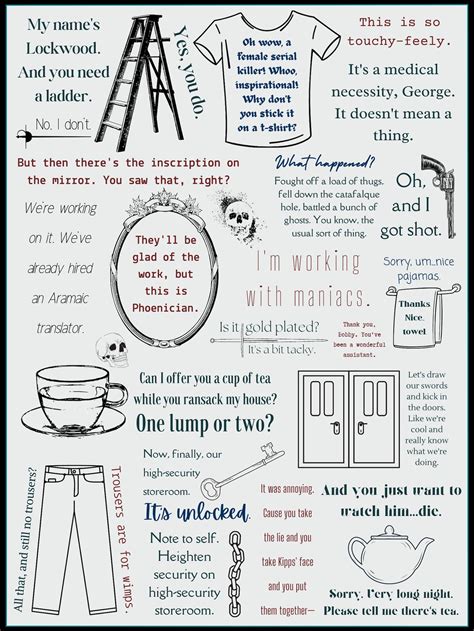 My name's
Lockwood.
And you need
a ladder.
No. I don't.
Yes, you do.
Oh wow, a
female serial
killer! Whoo,
inspirational!
Why don't
you stick it
on a t-shirt?
This is so
touchy-feely.
It's a medical
necessity, George.
It doesn't mean a
thing.
But then there's the inscription on
the mirror. You saw that, right?
We're working
on it. We've
already hired
an Aramaic
translator.
They'll be
glad of the
work, but
this is
Phoenician.
What happened?
Fought off a load of thugs,
fell down the catafalque
hole, battled a bunch of
ghosts. You know, the
usual sort of thing.
Oh,
and I
got shot.
I'm working
with maniacs.
Sorry, um...nice
pajamas.
Thanks
Nice.
towel
Is it gold plated?
It's a bit tacky.
Thank you,
Bobby. You've
been a wonderful
assistant.
Can I offer you a cup of tea
while you ransack my house?
One lump or two?
Let's draw
our swords
and kick in
the doors.
Like we're
cool and
really know
what we're
doing.
Now, finally, our
high-security
storeroom.
It's unlocked.
Note to self.
Heighten
security on
high-security
storeroom.
All that, and still no trousers?
Trousers are for wimps.
It was annoying.
Cause you take
the lie and you
take Kipps' face
and you put
them together—
And you just want to
watch him...die.
Sorry. Very long night.
Please tell me there's tea.